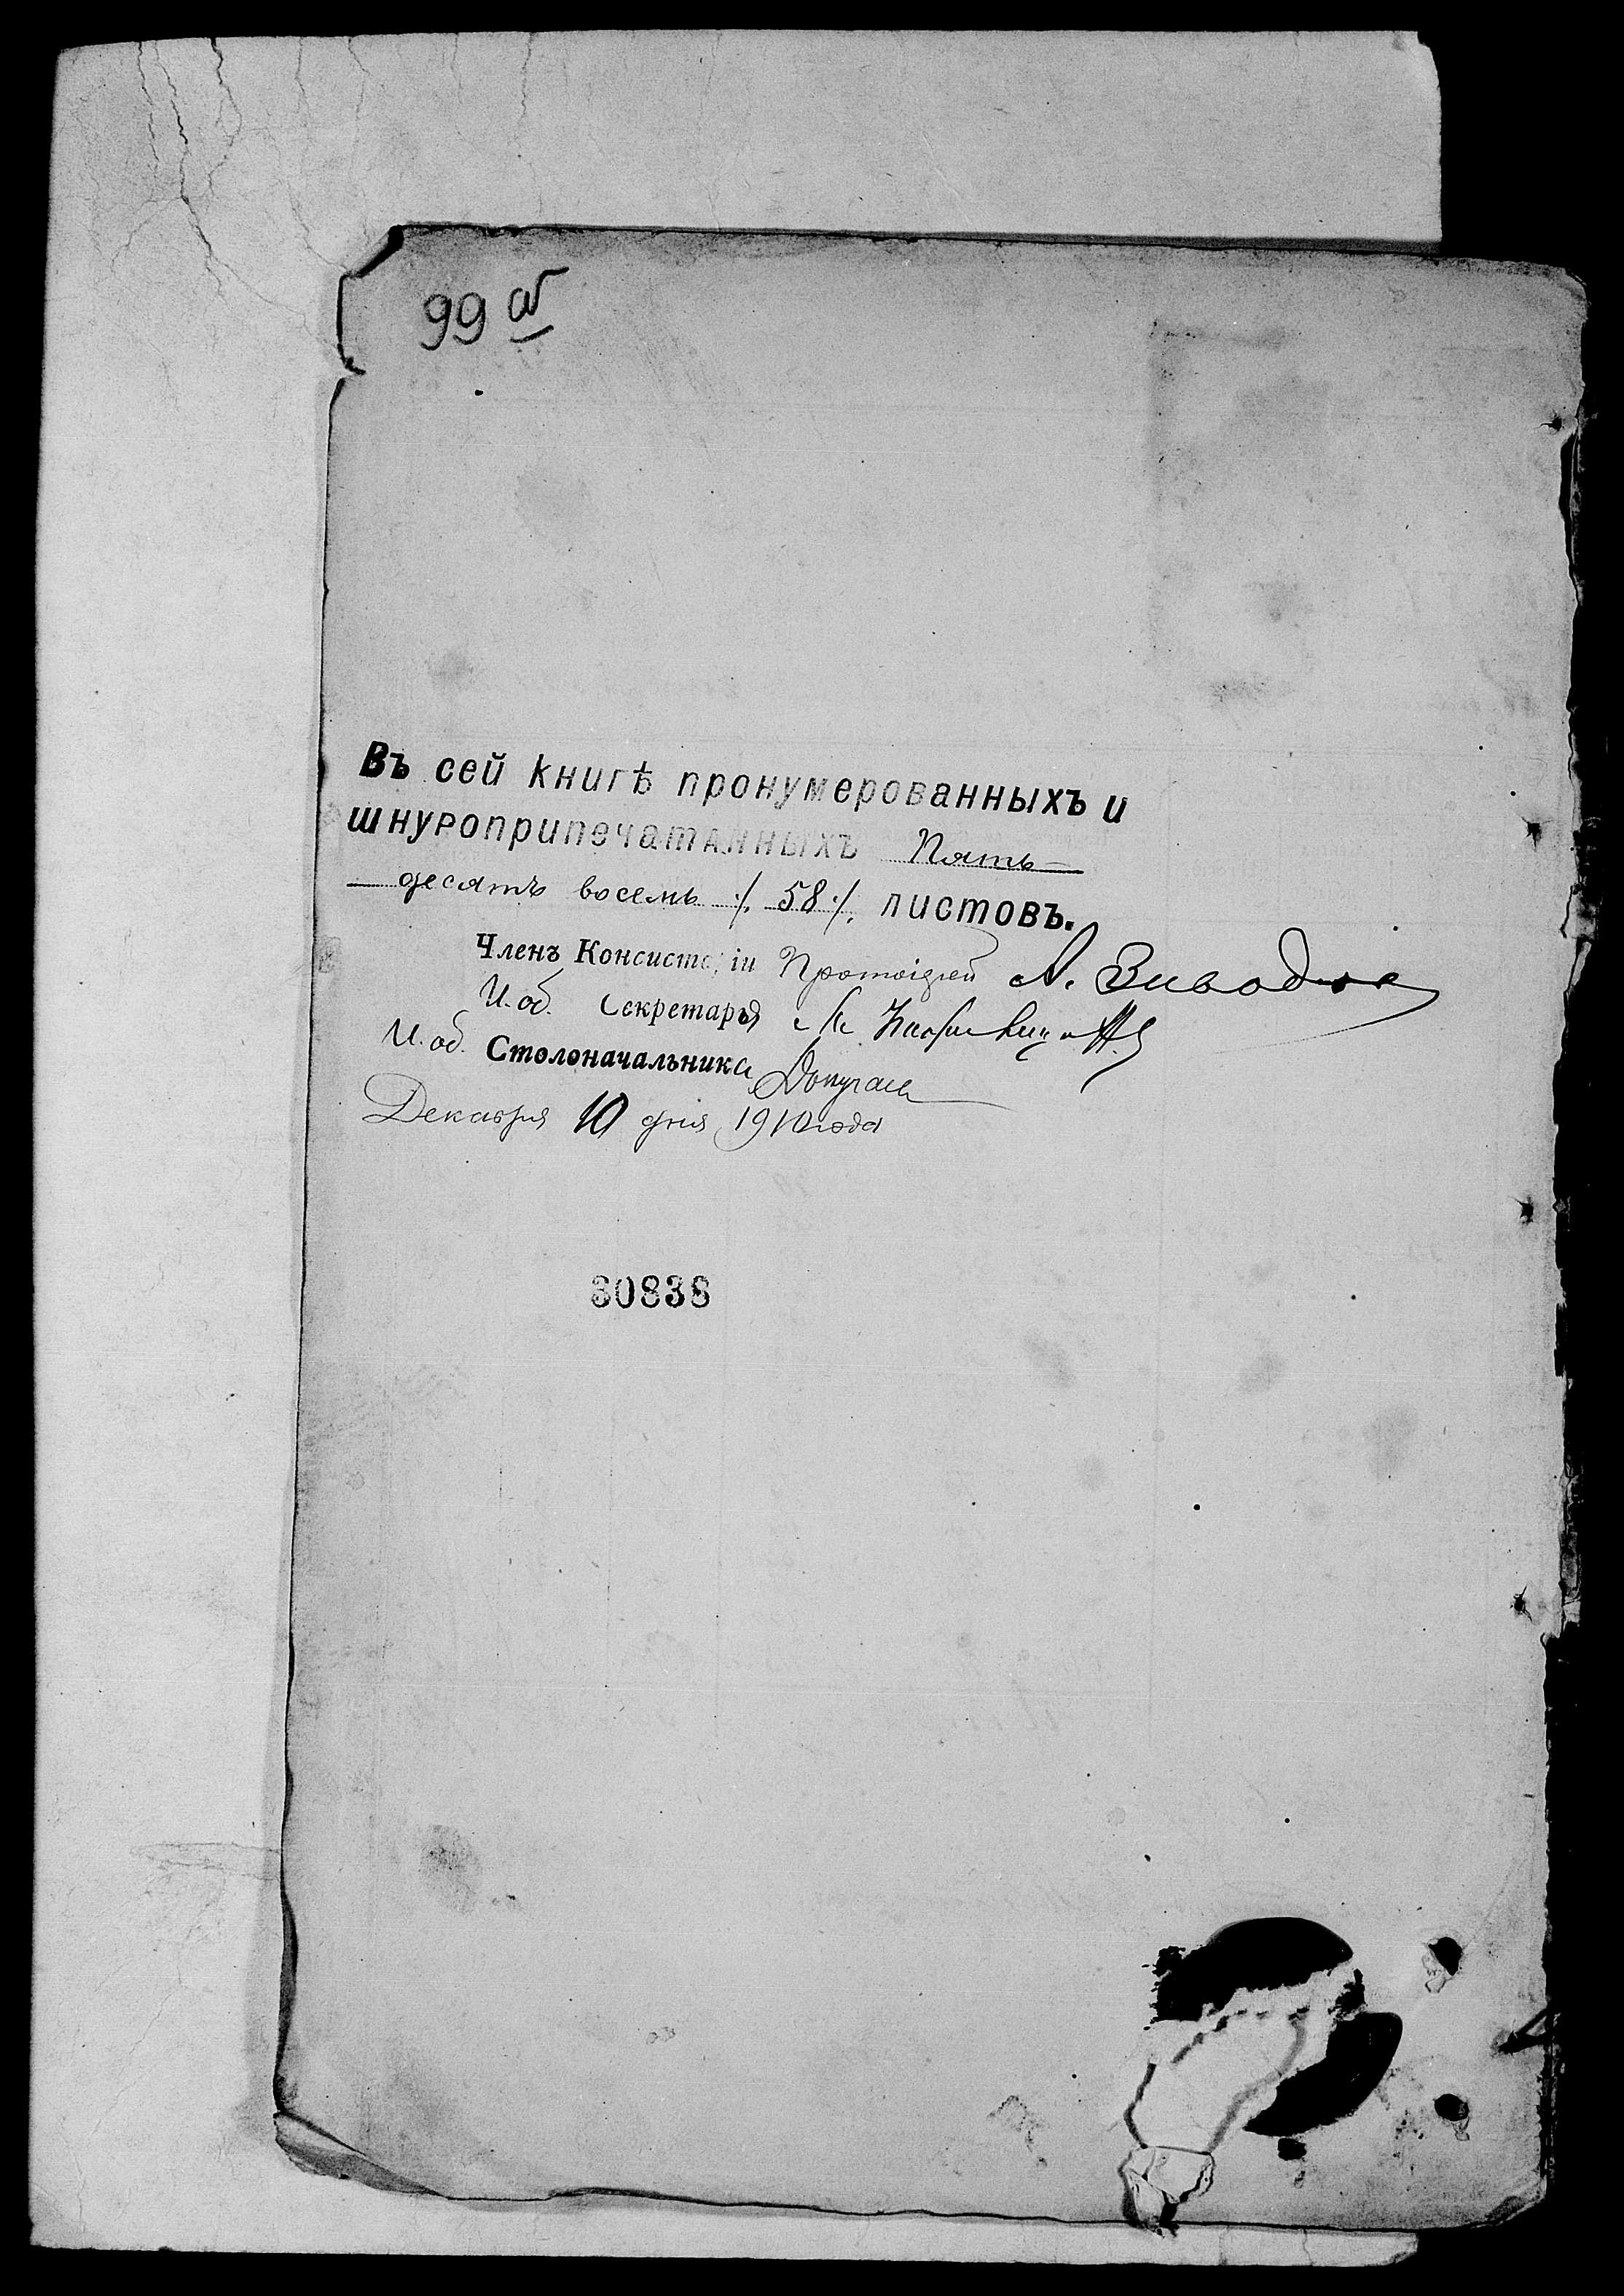 99 об
Въ сей книгѣ пронумерованныхъ и
шнуроприпечатанныхъ Пять-
десятъ восемь ./. 58 ./. листовъ.
Членъ Консисторіи Протоіерей А.
И. об. Секретаря
И. об. Столоначальника
Декабря 10 дня 1910 года
80838